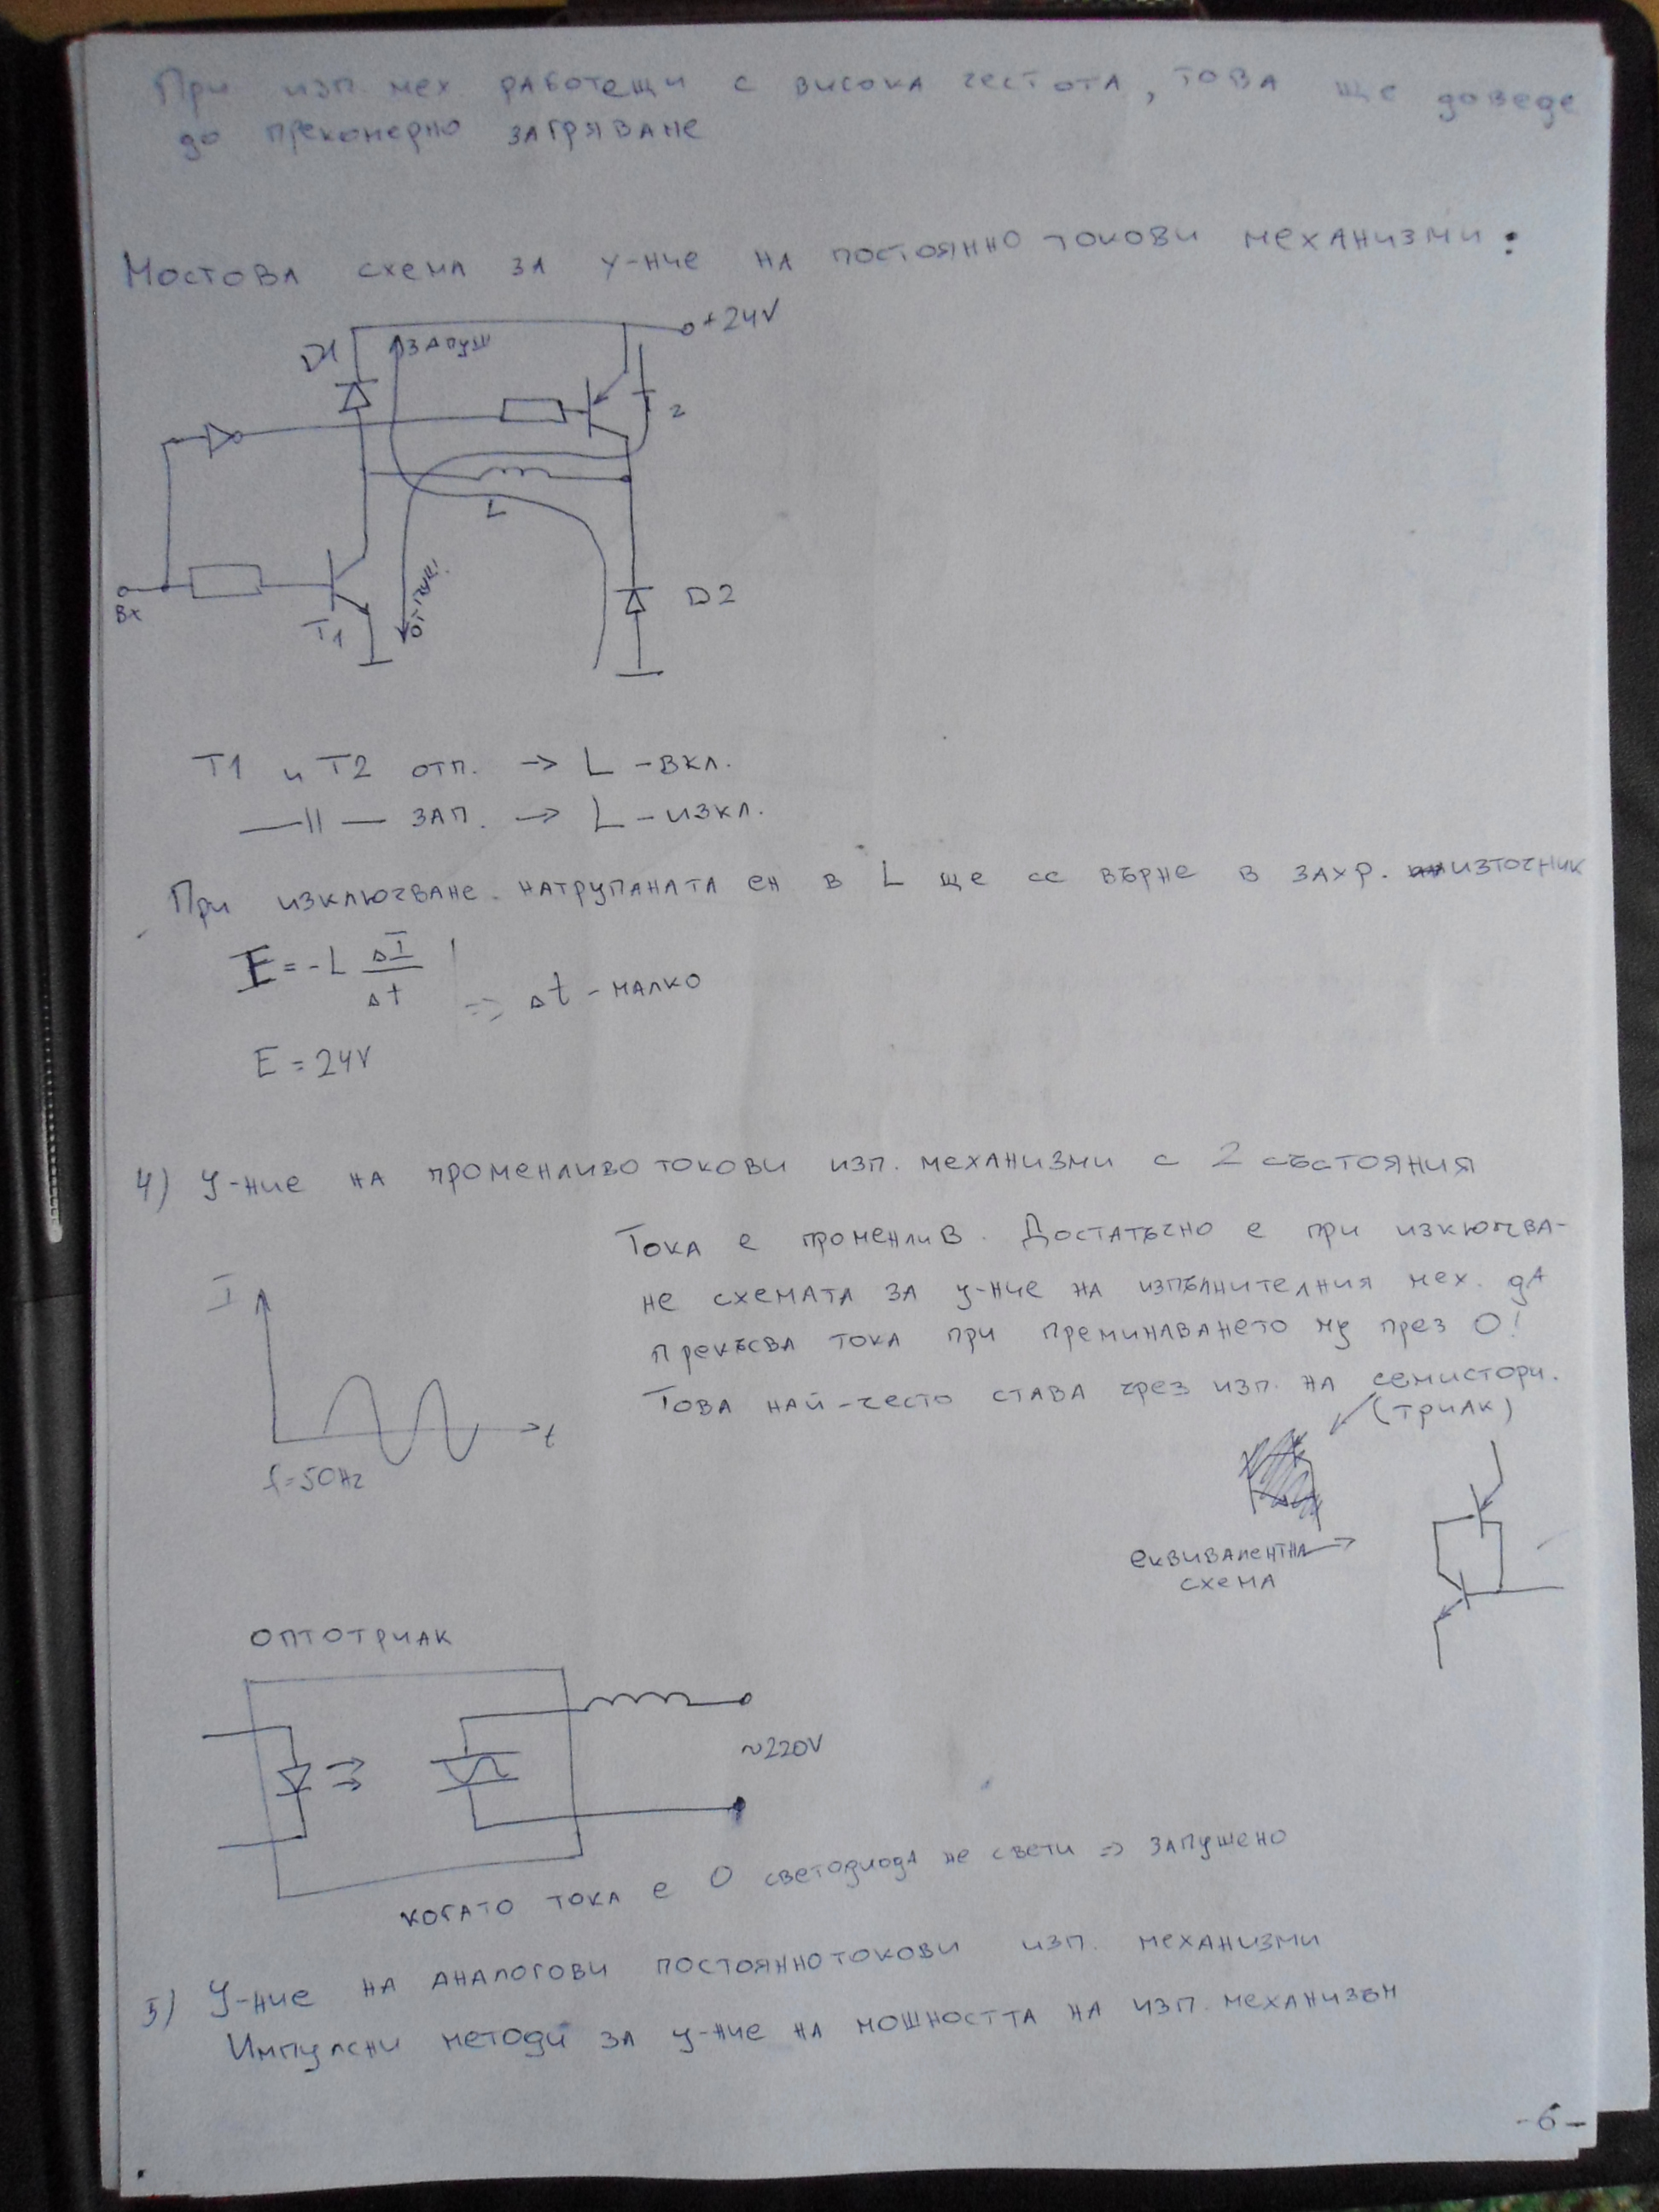 При изп. мех. работещи с висока честота, това ще доведе
до прекомерно загряване
Мостова схема за у-ние на постоянно токови механизми:
+24V
D1
запуш
2
L
Вх
T1
D2
T1 и T2 отп. -> L - вкл.
—||— зап. -> L - изкл.
При изключване. натрупаната ен в L ще се върне в захр. източник
E = -L ΔI/Δt
=> Δt - малко
E = 24V
4) У-ние на променливо токови изп. механизми с 2 състояния
Тока е променлив. Достатъчно е при изкючва-
не схемата за у-ние на изпълнителния мех. да
прекъсва тока при преминаването му през 0!
Това най-често става чрез изп. на семистори.
(триак)
I
t
f=50Hz
еквивалентна
схема
оптотриак
~220V
когато тока е 0 светодиода не свети => запушено
5) У-ние на аналогови постояннотокови изп. механизми
Импулсни методи за у-ние на мощността на изп. механизъм
-6-